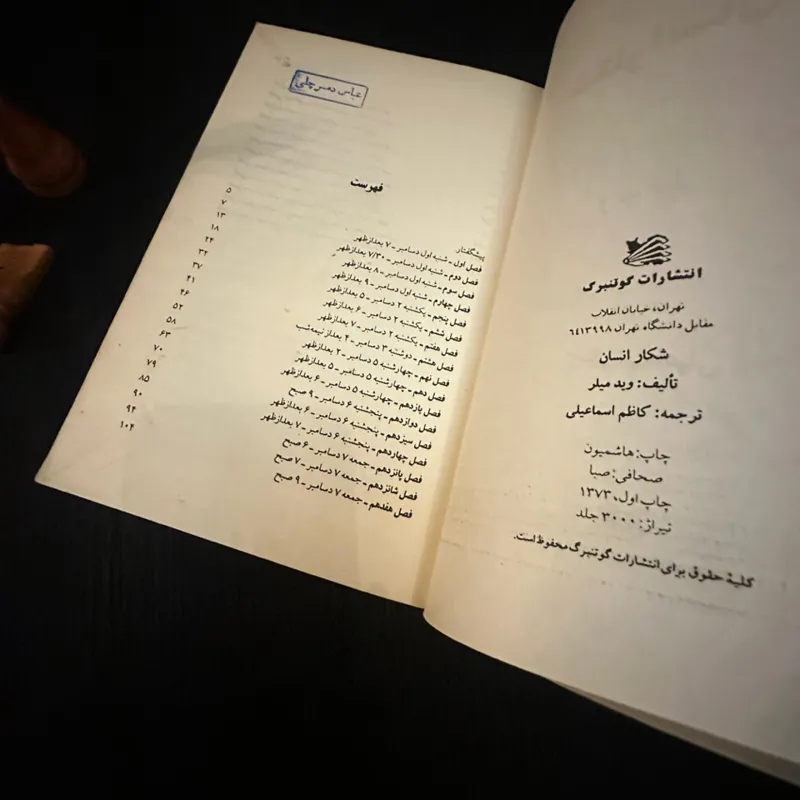 انتشارات گوتنبرگ
تهران، خیابان انقلاب
مقابل دانشگاه تهران ۶۴۱۳۹۹۸
شکار انسان
تألیف: وید میلر
ترجمه: کاظم اسماعیلی
چاپ: هاشمیون
صحافی: صبا
چاپ اول، ۱۳۷۳
تیراژ: ۳۰۰۰ جلد
کلیهٔ حقوق برای انتشارات گوتنبرگ محفوظ است.
عباس
فهرست
پیشگفتار ۵
فصل اول - شنبه اول دسامبر - ۷ بعدازظهر ۷
فصل دوم - شنبه اول دسامبر - ۷/۳۰ بعدازظهر ۱۳
فصل سوم - شنبه اول دسامبر - ۸ بعدازظهر ۱۸
فصل چهارم - شنبه اول دسامبر - ۹ بعدازظهر ۲۴
فصل پنجم - یکشنبه ۲ دسامبر - ۵ بعدازظهر ۳۲
فصل ششم - یکشنبه ۲ دسامبر - ۶ بعدازظهر ۳۷
فصل هفتم - یکشنبه ۲ دسامبر - ۷ بعدازظهر ۴۱
فصل هشتم - دوشنبه ۳ دسامبر - ۴ بعداز نیمه‌شب ۴۶
فصل نهم - چهارشنبه ۵ دسامبر - ۲ بعدازظهر ۵۲
فصل دهم - چهارشنبه ۵ دسامبر - ۵ بعدازظهر ۵۸
فصل یازدهم - چهارشنبه ۵ دسامبر - ۶ بعدازظهر ۶۳
فصل دوازدهم - پنجشنبه ۶ دسامبر - ۹ صبح ۷۰
فصل سیزدهم - پنجشنبه ۶ دسامبر - ۶ بعدازظهر ۷۹
فصل چهاردهم - پنجشنبه ۶ دسامبر - ۷ بعدازظهر ۸۵
فصل پانزدهم - جمعه ۷ دسامبر - ۶ صبح ۹۰
فصل شانزدهم - جمعه ۷ دسامبر - ۷ صبح ۹۴
فصل هفدهم - جمعه ۷ دسامبر - ۹ صبح ۱۰۴